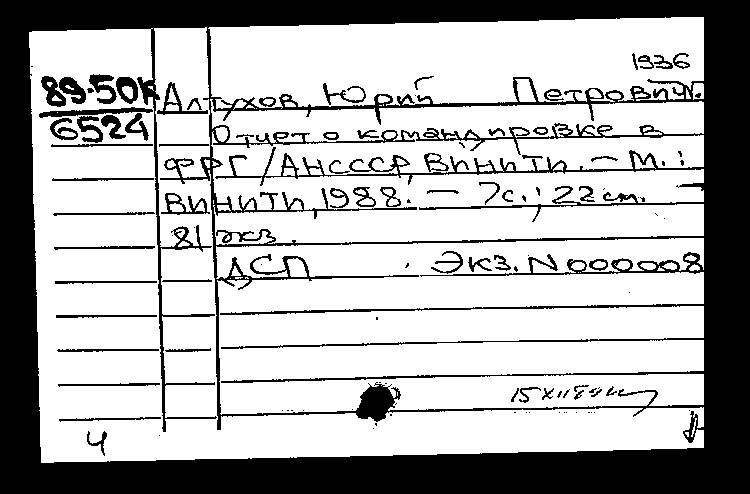 1936
89-50к Алтухов, Юрий Петрович.
6524 Отчет о командировке в
ФРГ/АНСССР, ВИНИТИ. — М.:
ВИНИТИ, 1988. — 7с.; 22 см. —
81 экз.
ДСП Экз. N 000008
15 XII
4